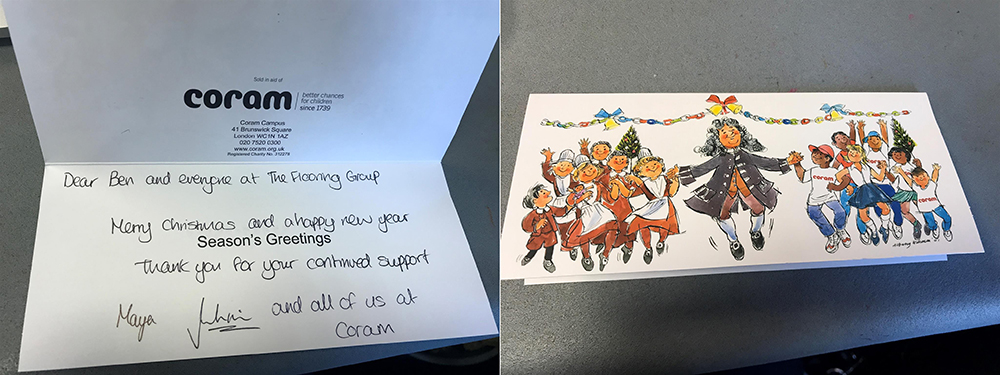 Sold in aid of
coram
better chances
for children
since 1739
Coram Campus
41 Brunswick Square
London WC1N 1AZ
020 7520 0300
www.coram.org.uk
Registered Charity No. 312278
Dear Ben and everyone at The Flooring Group
Merry Christmas and a happy new year
Season's Greetings
Thank you for your continued support
Maya
and all of us at
Coram
coram
coram
coram